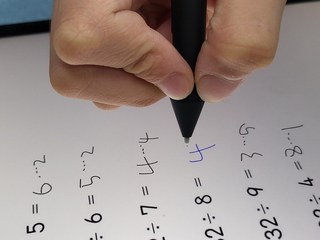 5 = 6…2
÷ 6 = 5…2
÷ 7 = 4…4
2 ÷ 8 = 4
32 ÷ 9 = 3…5
÷ 4 = 8…1